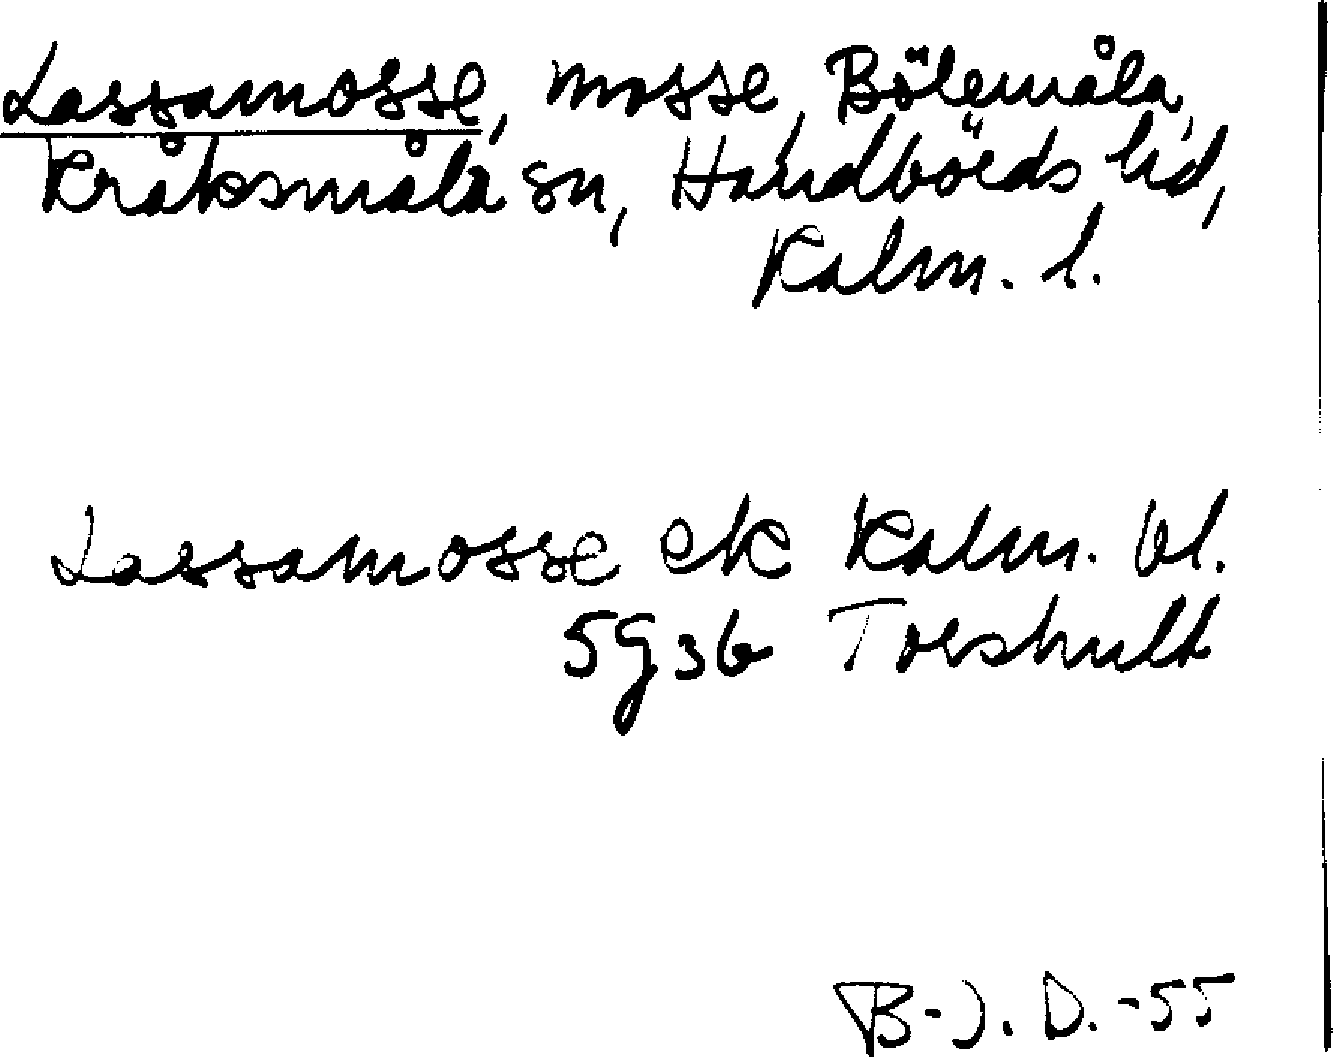 Lassamosse, mosse, Bölemåla,
Kråksmåla sn, Handbörds hd,
Kalm. l.
Lassamosse ek Kalm. bl.
5g36 Toeshult
B-J. D. -55